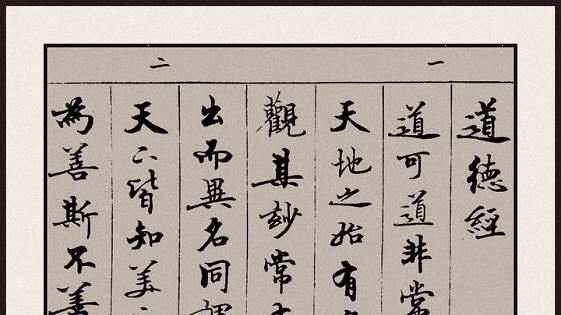 道德經
一
道可道非常
天地之始有
觀其妙常
出而異名同
二
天下皆知美
為善斯不善